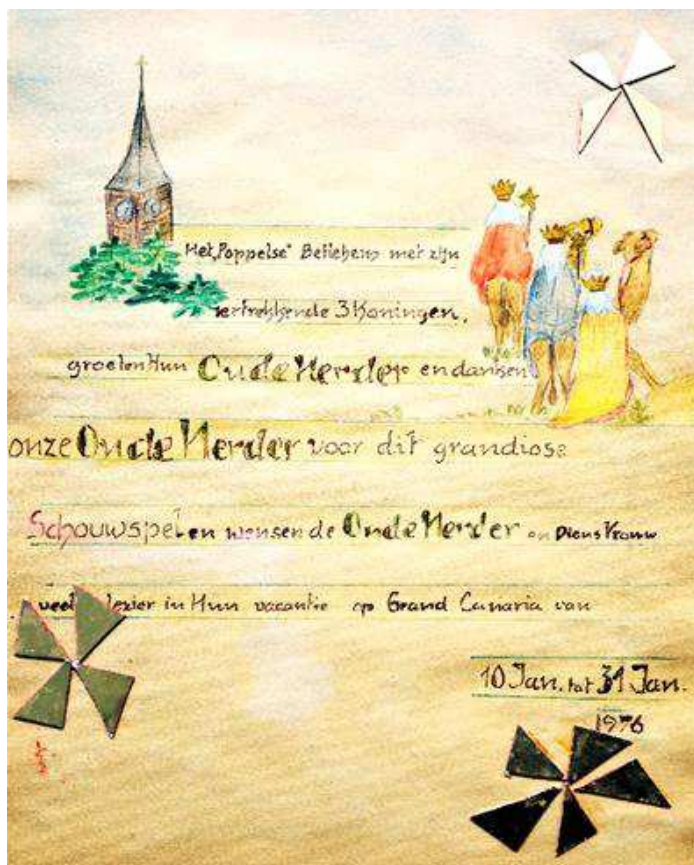 Het „Poppelse" Betlehem met zijn
vertrekkende 3 Koningen.
groeten Hun Oude Herder en danken
onze Oude Herder voor dit grandiose
Schouwspel en wensen de Oude Herder en Diens Vrouw
veel in Hun vacantie op Grand Canaria van
10 Jan. tot 31 Jan.
1976